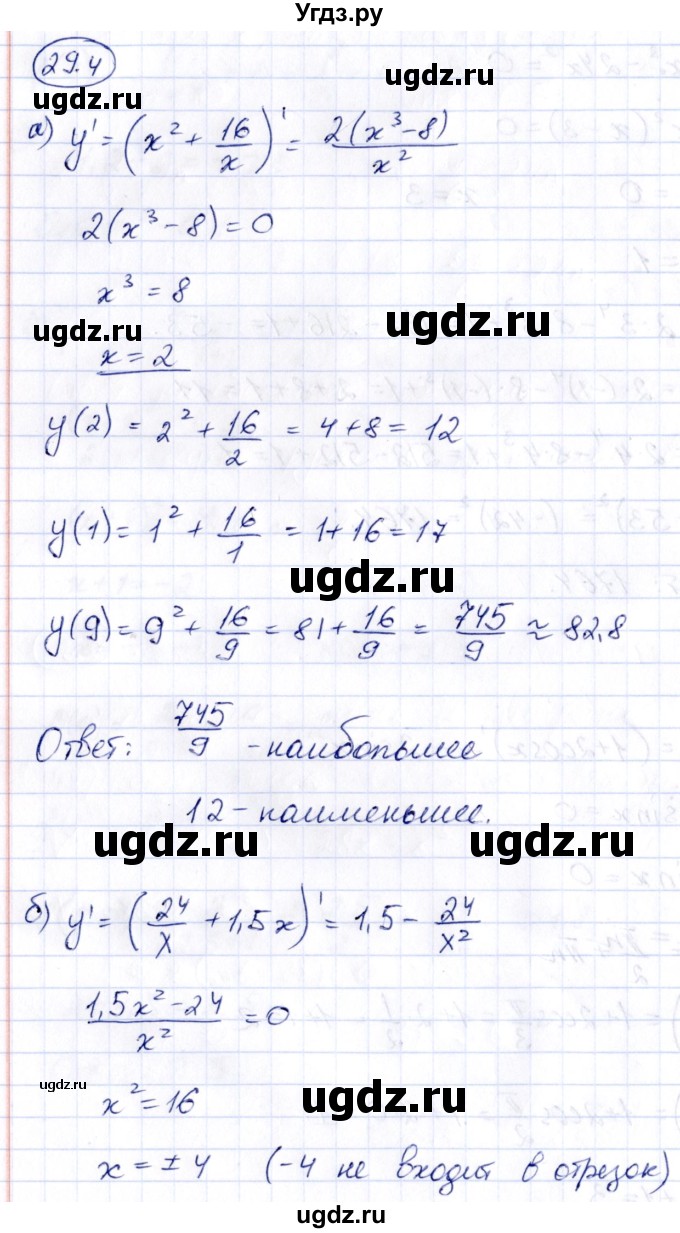 Угдз.ру
29.4
ugdz.ru
а) y' = (x² + 16/x)' = 2(x³-8)/x²
2(x³-8)=0
x³ = 8
ugdz.ru ugdz.ru
x = 2
y(2) = 2² + 16/2 = 4+8 = 12
y(1) = 1² + 16/1 = 1+16 = 17
ugdz.ru
y(9) = 9² + 16/9 = 81 + 16/9 = 745/9 ≈ 82,8
Ответ: 745/9 - наибольшее
12 - наименьшее.
ugdz.ru ugdz.ru
б) y' = (24/x + 1,5x)' = 1,5 - 24/x²
(1,5x²-24)/x² = 0
ugdz.ru
x² = 16
ugdz.ru
x = ±4 (-4 не входит в отрезок)
ugdz.ru